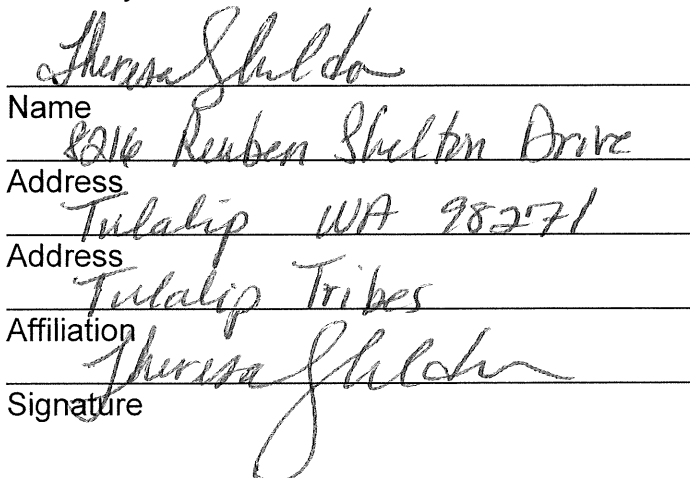 Theresa Sheldon
Name
8216 Reuben Shelton Drive
Address
Tulalip WA 98271
Address
Tulalip Tribes
Affiliation
Theresa Sheldon
Signature